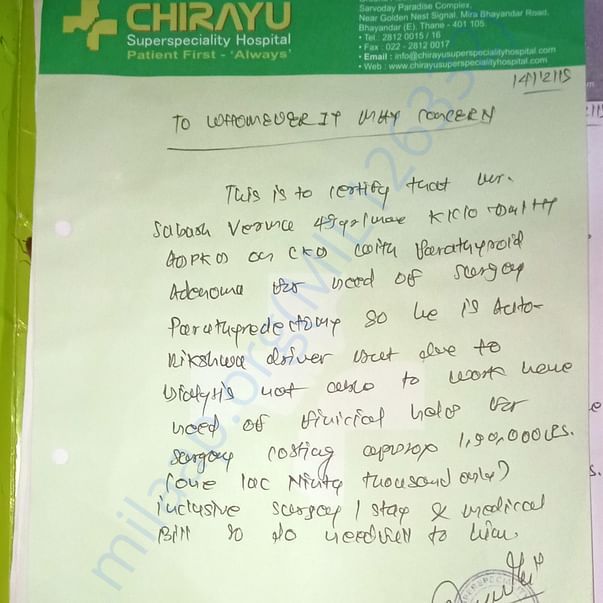 CHIRAYU
Superspeciality Hospital
Patient First - 'Always'
Sarvoday Paradise Complex,
Near Golden Nest Signal, Mira Bhayandar Road,
Bhayandar (E), Thane - 401 105.
• Tel.: 2812 0015 / 16
• Fax : 022 - 2812 0017
• Email : info@chirayusuperspecialityhospital.com
• Web : www.chirayusuperspecialityhospital.com
14/12/15
TO WHOMEVER IT MAY CONCERN
This is to certify that mr.
Subash Verma 45yr/male K/C/O HT
ADPKD CKD with Parathyroid
Adenoma for need of surgey
Parathyredectomy so he is Auto-
Rikshwa driver but due to
Dialysis not able to work have
need of finicial help for
surgey costing approx 1,90,000 RS.
(one lac Ninty thousand only)
inclusive surgey / stay & medical
Bill so do needfull to him.
milaap.org